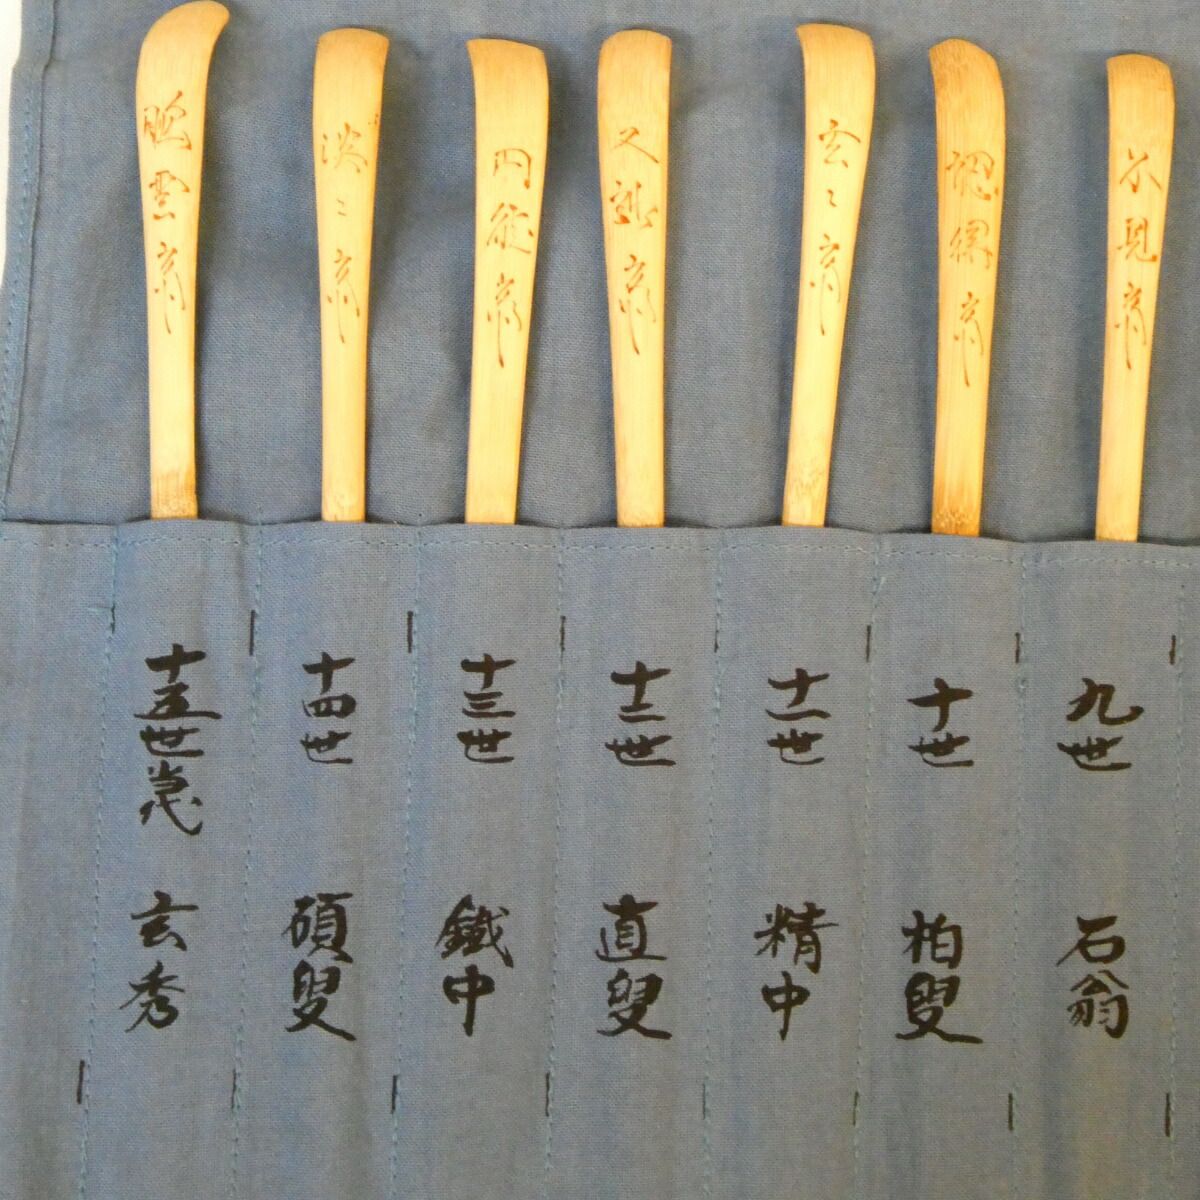 不見斎
九世 石翁
認得斎
十世 柏叟
玄々斎
十一世 精中
又玅斎
十二世 直叟
円能斎
十三世 鐵中
淡々斎
十四世 碩叟
鵬雲斎
十五世 玄秀